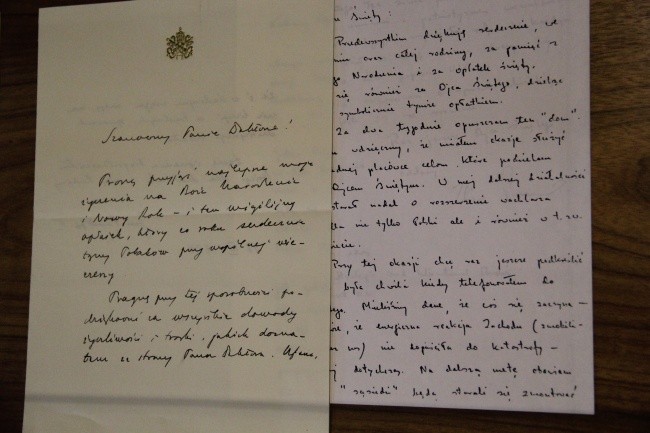 Szanowny Panie Doktorze!
Proszę przyjąć najlepsze moje
życzenia na Boże Narodzenie
i Nowy Rok – i ten wigilijny
opłatek, który co roku serdecznie
łączy Polaków przy wspólnej wie-
czerzy
Pragnę przy tej sposobności po-
dziękować za wszystkie dowody
życzliwości i troski, jakich dozna-
łem ze strony Pana Doktora. Ufam,
Święty:
Przedewszystkim dziękuję serdecznie, we
oraz całej rodziny, za pamięć z
Narodzenia i za opłatek święty.
się również za Ojca Świętego, dzieląc
symbolicznie tymże opłatkiem.
Za dwa tygodnie opuszczam ten "dom".
wdzięczny, że miałem okazję służyć
celom, które podzielam
Ojcem Świętym. W mej dalszej działalności
nadal o rozszerzenie wachlarza
nie tylko Polski ale i również w t. zw.
Przy tej okazji chcę raz jeszcze podkreślić
była chwila kiedy telefonowałem do
Mieliśmy dane, że coś się zaczyna –
że energiczna reakcja Zachodu
nie dopuściła do katastrofy –
dotyczącej. Na dalszą metę obawiam
"sąsiedzi" będą starali się zmontować